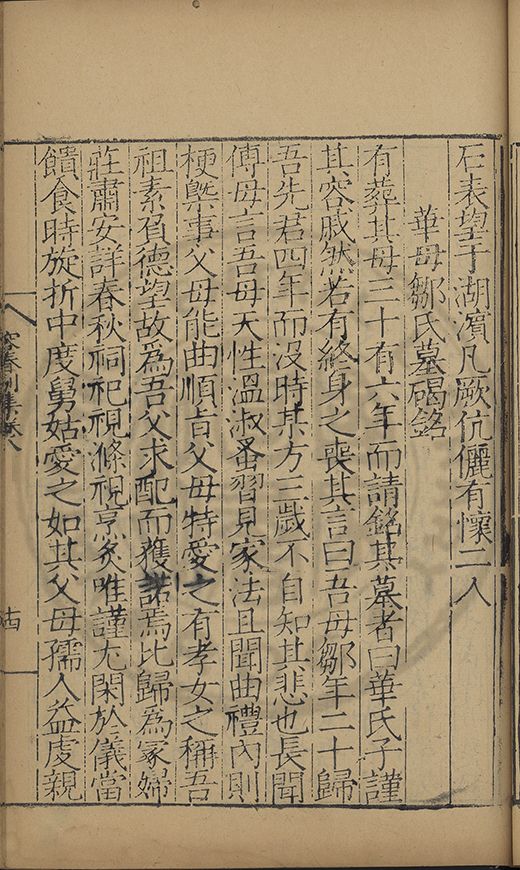 石表望于湖濱凡厥伉儷有懷二人
華母鄒氏墓碣銘
有葬其母三十有六年而請銘其墓者曰華氏子謹
其容戚然若有終身之喪其言曰吾母鄒年二十歸
吾先君四年而没時某方三歲不自知其悲也長聞
傅母言吾母天性温淑蚤習見家法且聞曲禮內則
梗槩事父母能曲順旨父母特愛之有孝女之稱吾
祖素負德望故爲吾父求配而獲諾焉比歸爲冢婦
莊肅安詳春秋祠祀視滌視烹炙唯謹尤閑於儀當
饋食時旋折中度舅姑愛之如其父母孺人益虔親
容春別集卷八
十四